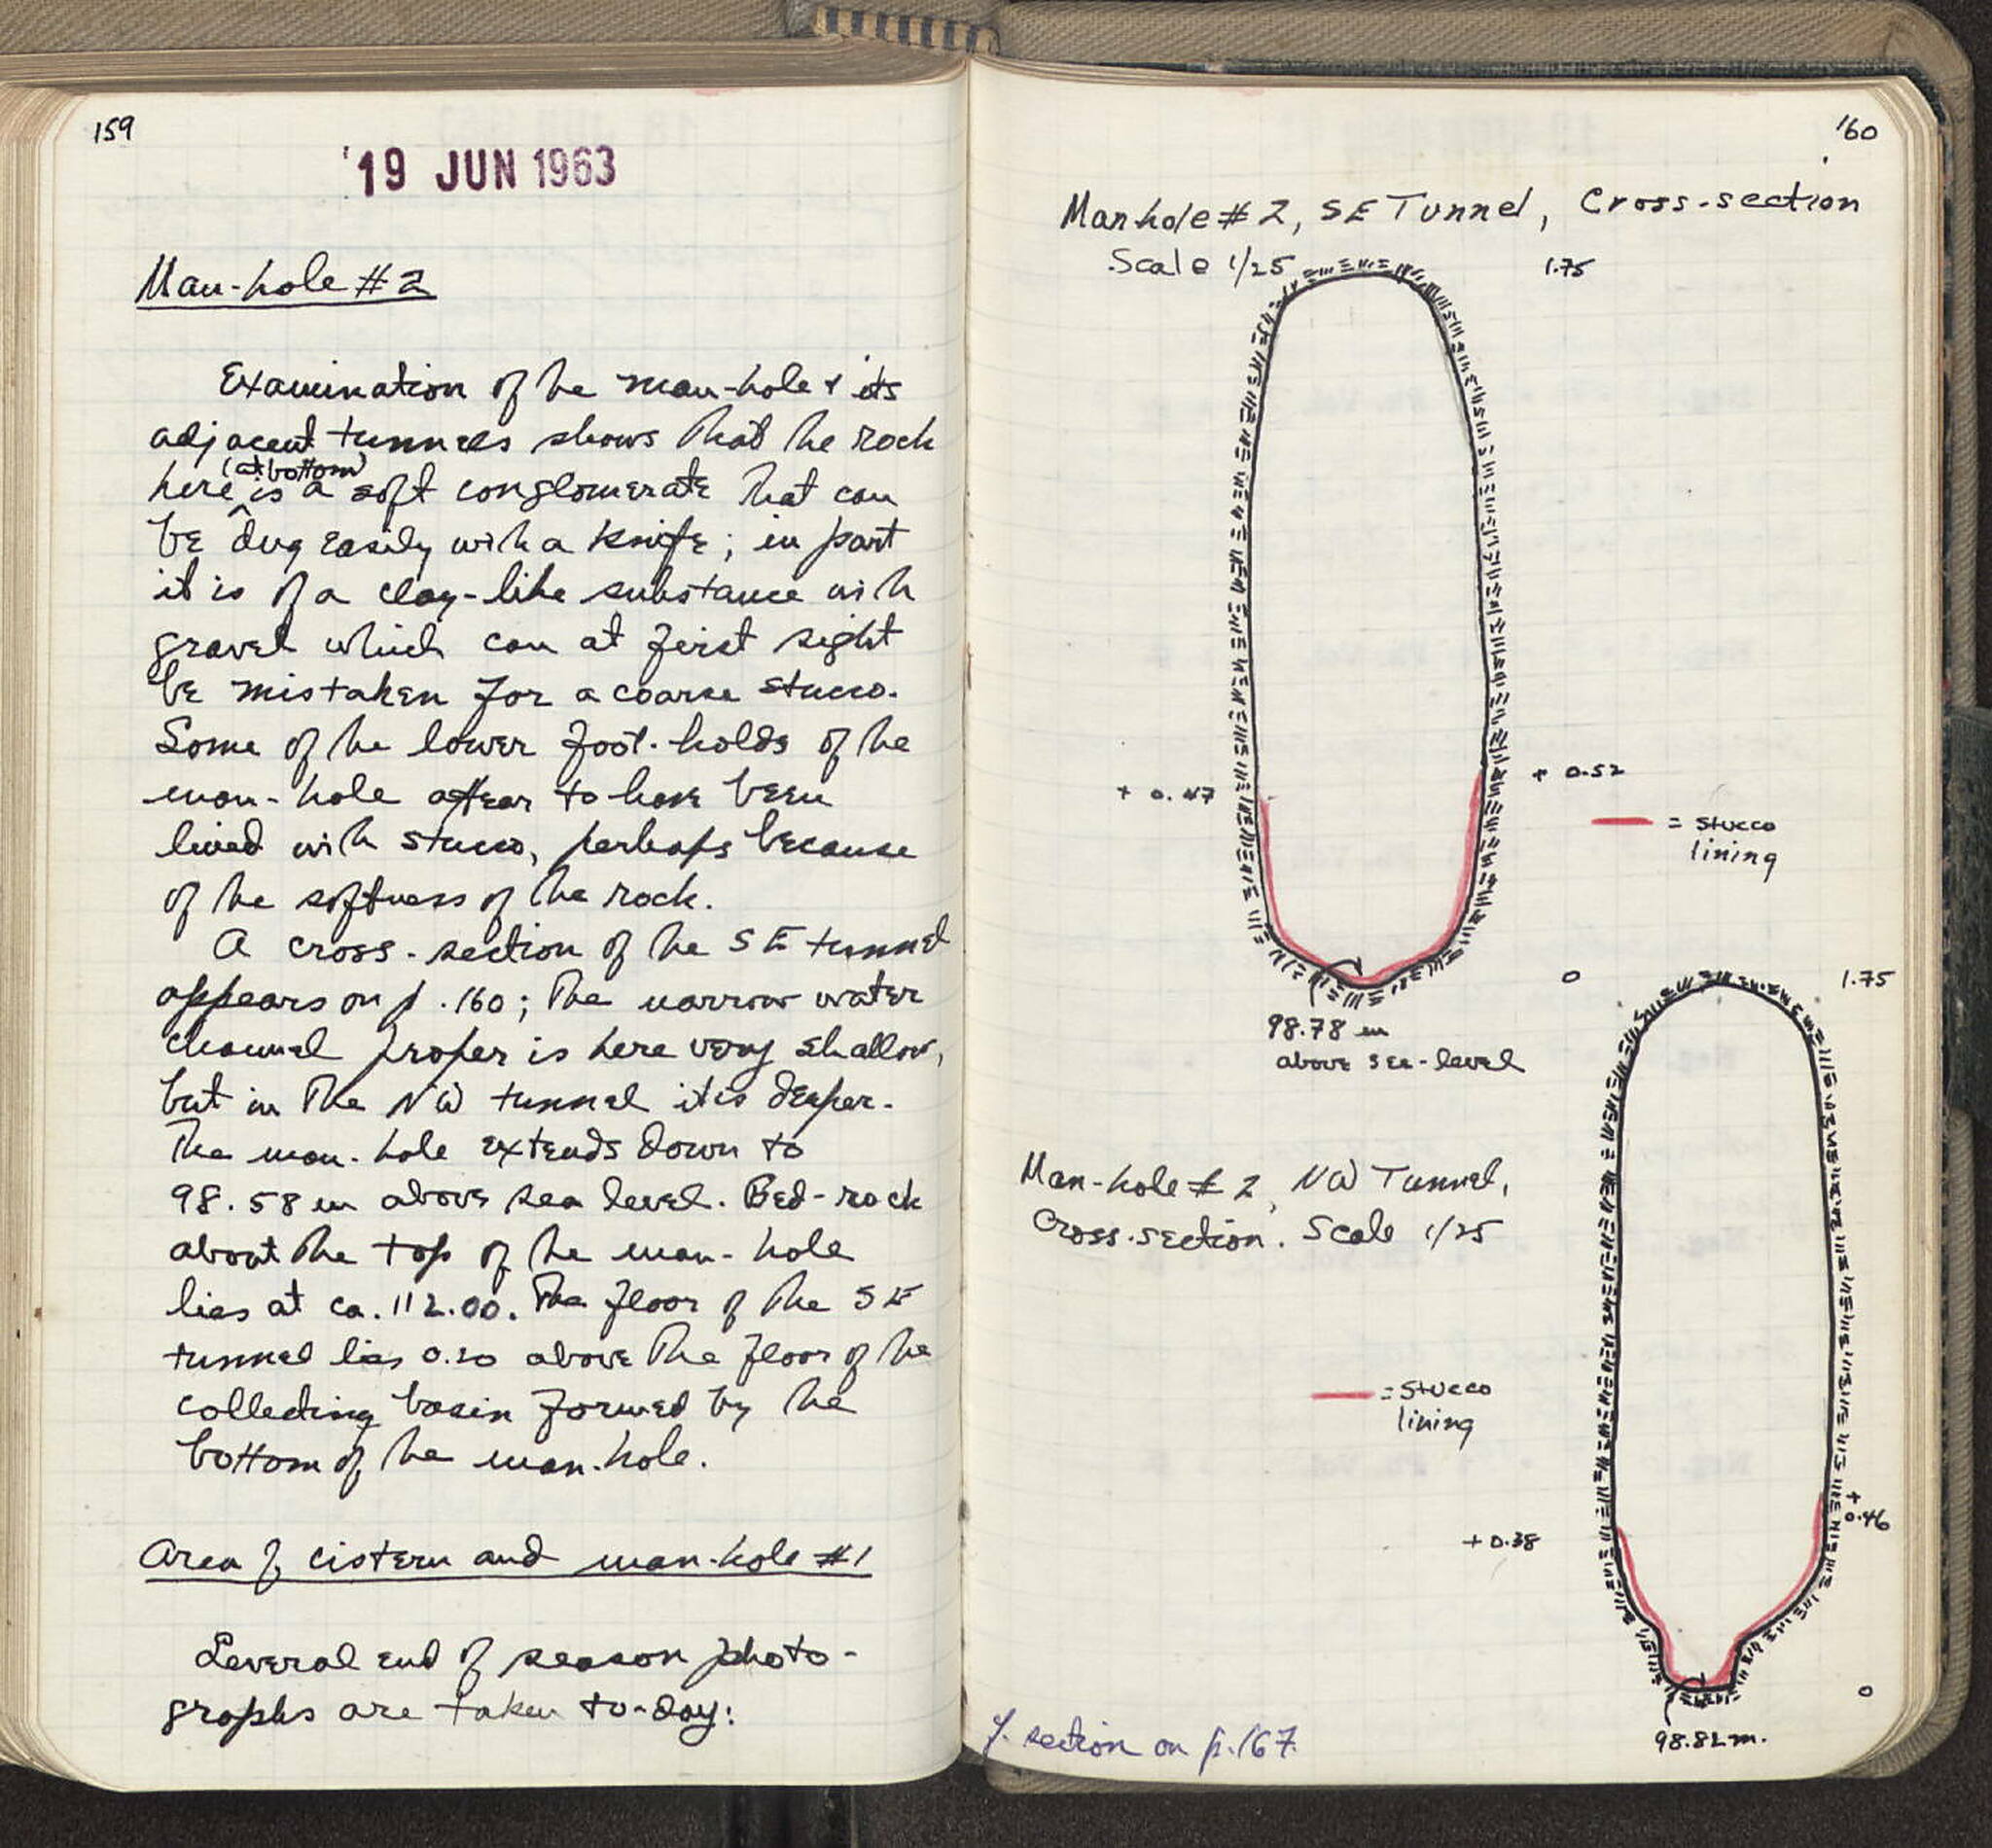 159
19 JUN 1963
Man-hole #2
Examination of the man-hole & its
adjacent tunnels shows that the rock
(at bottom)
here is a soft conglomerate that can
be dug easily with a knife; in part
it is of a clay-like substance with
gravel which can at first sight
be mistaken for a coarse stucco.
Some of the lower foot-holds of the
man-hole appear to have been
lined with stucco, perhaps because
of the softness of the rock.
A cross-section of the SE tunnel
appears on p.160; the narrow water
channel proper is here very shallow,
but in the NW tunnel it is deeper.
The man-hole extends down to
98.58 m above sea level. Bed-rock
about the top of the man-hole
lies at ca. 112.00. The floor of the SE
tunnel lies 0.20 above the floor of the
collecting basin formed by the
bottom of the man-hole.
Area of cistern and man-hole #1
Several end of season photo-
graphs are taken to-day:
160
Manhole #2, SE Tunnel, Cross-section
Scale 1/25
1.75
+ 0.47
+ 0.52
= stucco
lining
0
98.78 m
above sea-level
1.75
Man-hole #2, NW Tunnel,
Cross-section. Scale 1/25
= stucco
lining
+
0.46
+0.38
0
98.82 m.
cf. section on p.167